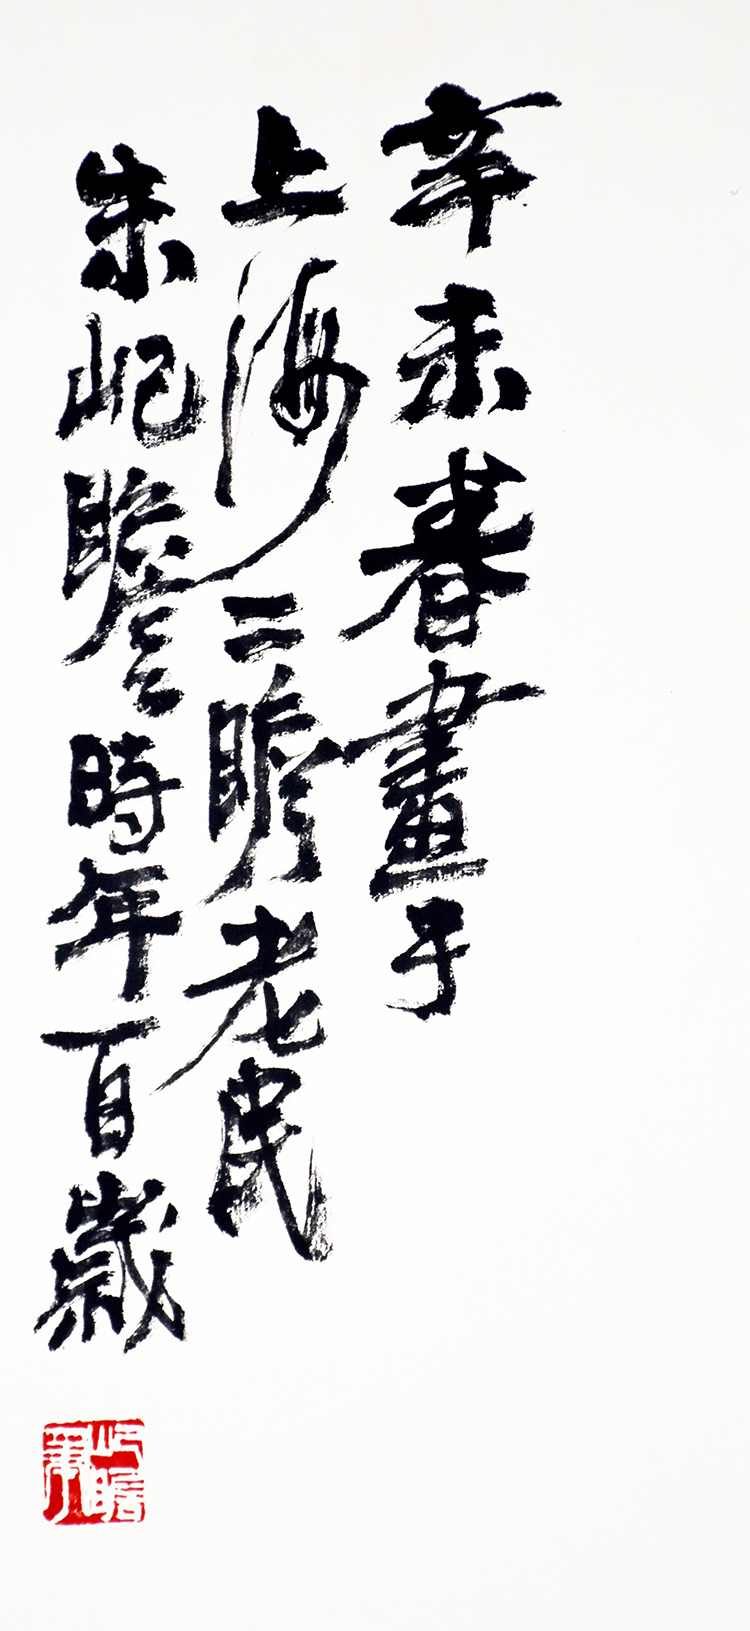 辛未春畫于
上海二瞻老民
朱屺瞻時年百歲
屺瞻